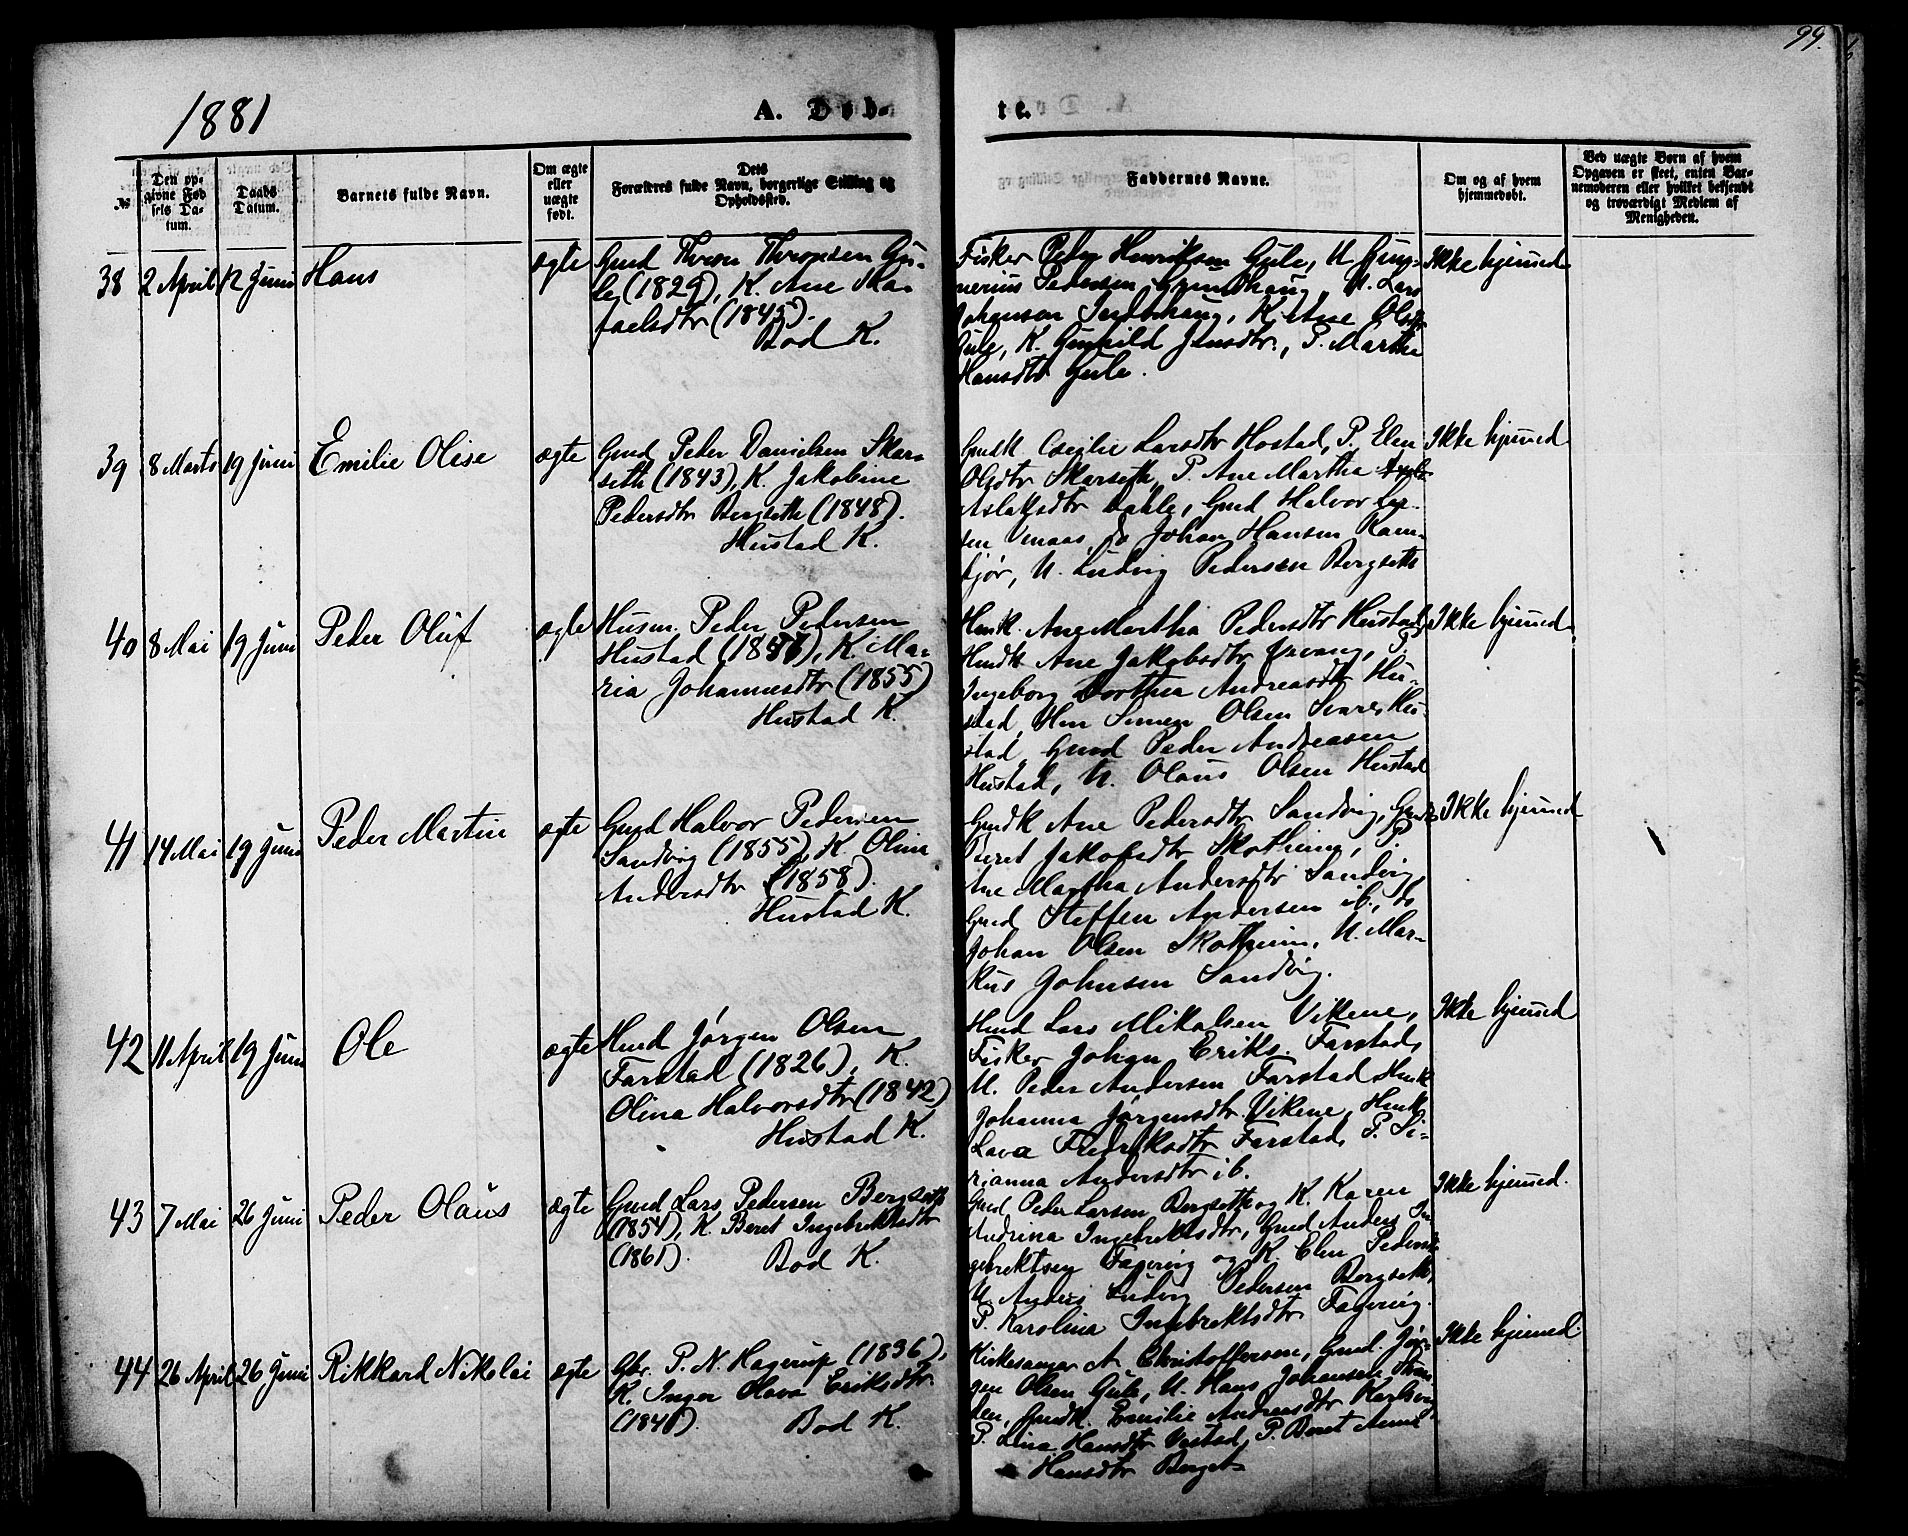 99.
1881
A. Døb-
te.
№
Den op-
givne Fød
sels Da-
tum.
Daabs
Datum.
Barnets fulde Navn.
Om ægte
eller
uægte
født.
Dets
Forældres fulde Navn, borgerlige Stilling og
Opholdssted.
Faddernes Navne.
Om og af hvem
hjemmedøbt.
Ved uægte Børn af hvem
Opgaven er skeet, enten Bar-
nemoderen eller hvilket bekjendt
og troværdigt Medlem af
Menigheden.
38 2 April 12 Juni Hans ægte
Gmd Thron Thronsen Gu-
le (1829), K. Ane Ra-
faelsdtr (1845).
Bod K.
Fisker Peder Henriksen Gule, U
Pedersen U. Lars
Johansen Inderhaug, K. Ane Olsdtr
Gule, K. Gunhild Jensdtr., P. Martha
Hansdtr Gule.
Ikke hjemmed
39 8 Marts 19 Juni Emilie Olise ægte
Gmd Peder Danielsen Skar-
seth (1843), K. Jakobine
Pedersdtr Bergseth (1848).
Hustad K.
Gmdk Larsdtr Hostad, P. Elen
Olsdtr Skarseth, P. Ane Martha
Aslaksdtr Dahle, Gmd Halvor
sen do Johan Hansen Ram-
U. Ludvig Pedersen Bergseth
Ikke hjemmed
40 8 Mai 19 Juni Peder Oluf ægte
Husm. Peder Pedersen
Hustad K. Ma-
ria Johannesdtr (1855)
Hustad K.
Hmk. Ane Martha Pedersdtr Hustad,
Hmdk Ane Jakobsdtr P.
Ingeborg Dorthea Andreasdtr Hu-
stad, Hm Simen Olsen Hu-
stad, Gmd Peder Andreasen
Hustad, U. Olaus Olsen Hustad
Ikke hjemmed
41 14 Mai 19 Juni Peder Martin ægte
Gmd Halvor Pedersen
Sandvig (1855), K. Olina
Andersdtr (1858).
Hustad K.
Gmdk Ane Pedersdtr Sandvig, Gmdk
Beret Jakobsdtr Skotheim, P.
Ane Martha Andersdtr Sandvig,
Gmd Steffen Andersen ib., do
Johan Olsen Skotheim, U. Mar-
kus Johnsen Sandvig.
Ikke hjemmed
42 11 April 19 Juni Ole ægte
Hmd Jørgen Olsen
Farstad (1826), K.
Olina Halvorsdtr (1842)
Hustad K.
Hmd Lars Mikalsen Vikene,
Fisker Johan Eriks. Farstad,
U. Peder Andersen Farstad, Hmk
Johanna Jørgensdtr Vikene, Hmk
Lava Fredriksdtr Farstad, P. Si-
rianna Andersdtr ib.
Ikke hjemmed
43 7 Mai 26 Juni Peder Olaus ægte
Gmd Lars Pedersen Bergseth
(1854), K. Beret Ingebrektsdtr
(1861). Bod K.
Gmd Peder Larsen Bergseth og K. Karen
Andrina Ingebrektsdtr, Gmd Anders In-
gebrektsen Fagervig og K. Elen Pedersdtr
U. Anders Ludvig Pedersen Bergseth,
P. Karolina Ingebrektsdtr Fagervig.
Ikke hjemmed.
44 26 April 26 Juni Rikkard Nikolai ægte
Gbr. P. N. Hagerup (1836),
K. Inger Olava Eriksdtr
(1840). Bod K.
Kirkesanger A. Christoffersen, Gmd. Jør-
gen Olsen Gule, U. Hans Johansen Stran-
den, Gmdk. Emilie Andreasdtr
P. Lina Hansdtr Vestad, P. Beret Anne
Hansdtr Berget
Ikke hjemmed